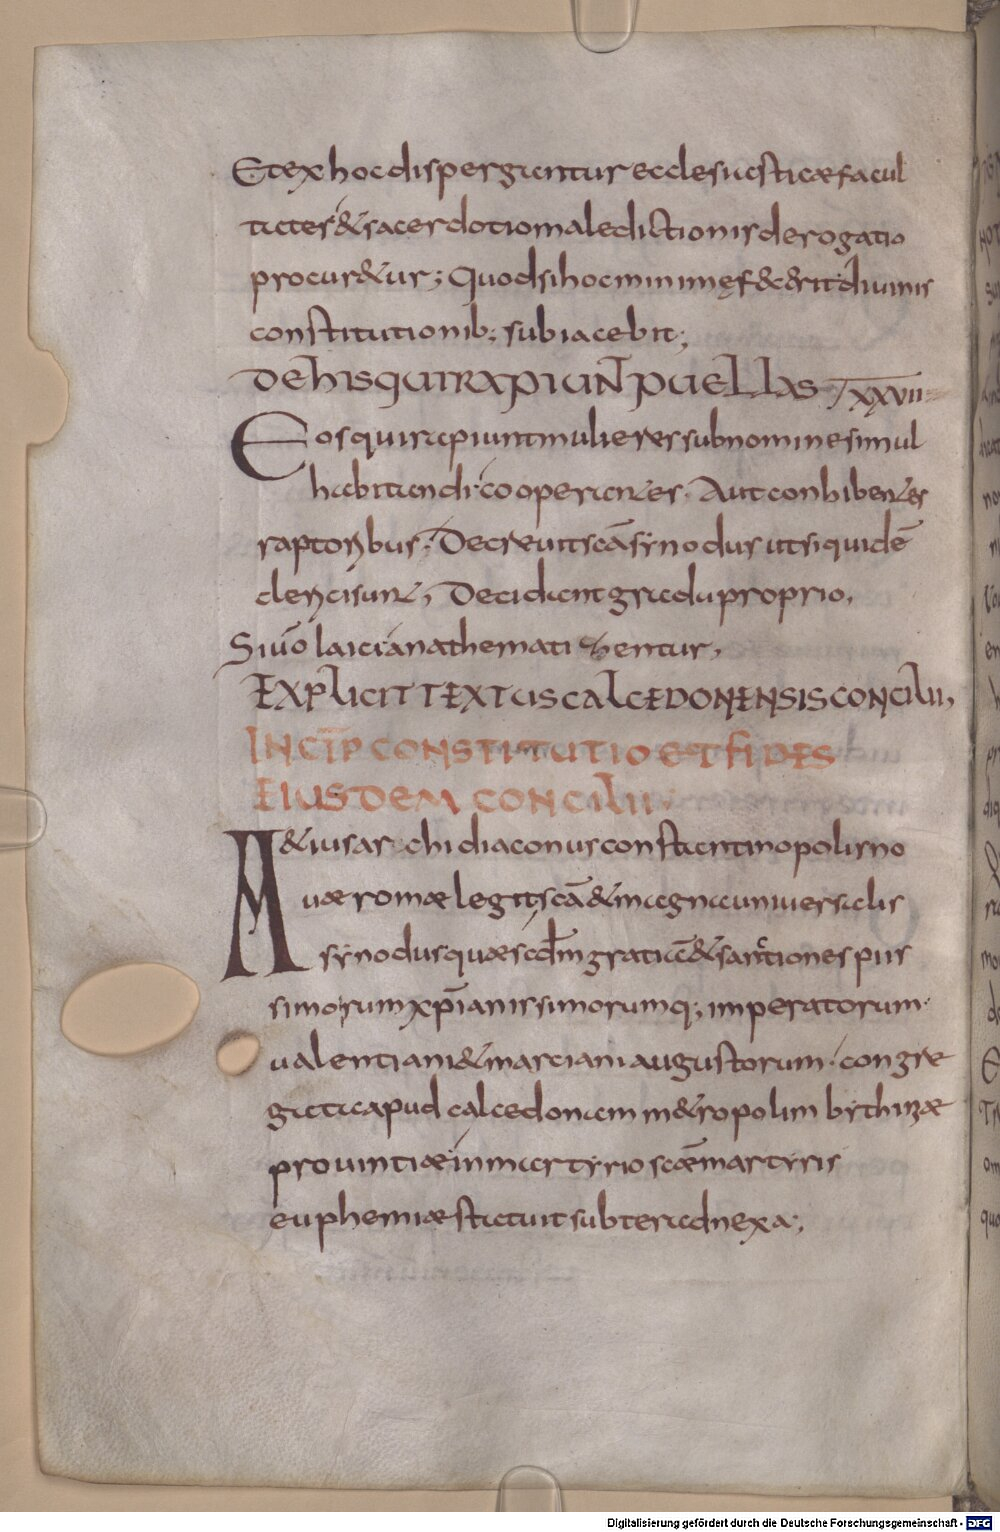 Et ex hoc dispergantur ecclesiasticæ facul
tates & sacerdotio maledictionis derogatio
procur&ur; Quod si hoc minimę f&&rit diuinis
constitutionib; subiacebit;
DE HIS QUI RAPIUNT PUELLAS XXVII
Eos qui rapiunt mulieres sub nomine simul
habitandi cooperantes. Aut conhibentes
raptoribus; Decreuit scā synodus ut si quidē
clerici sunt, Decidant gradu proprio,
Si uō laici anathematizentur,
EXPLICIT TEXTUS CALCEDONENSIS CONCILII,
INCIP̄ CONSTITUTIO ET FIDES
EIUSDEM CONCILII
A&ius archidiaconus constantinopolis no
uæ romæ legit scā & magna uniuersalis
synodus quæ scdm̄ gratiā & sanctiones piis
simorum xp̄ianissimorumq; imperatorum.
ualentiani & marciani augustorum. congre
gata apud calcedonam m&ropolim bythizæ
prouintiæ in martyrio scǣ martyris
euphemiæ statuit subter adnexa;
Digitalisierung gefördert durch die Deutsche Forschungsgemeinschaft - DFG